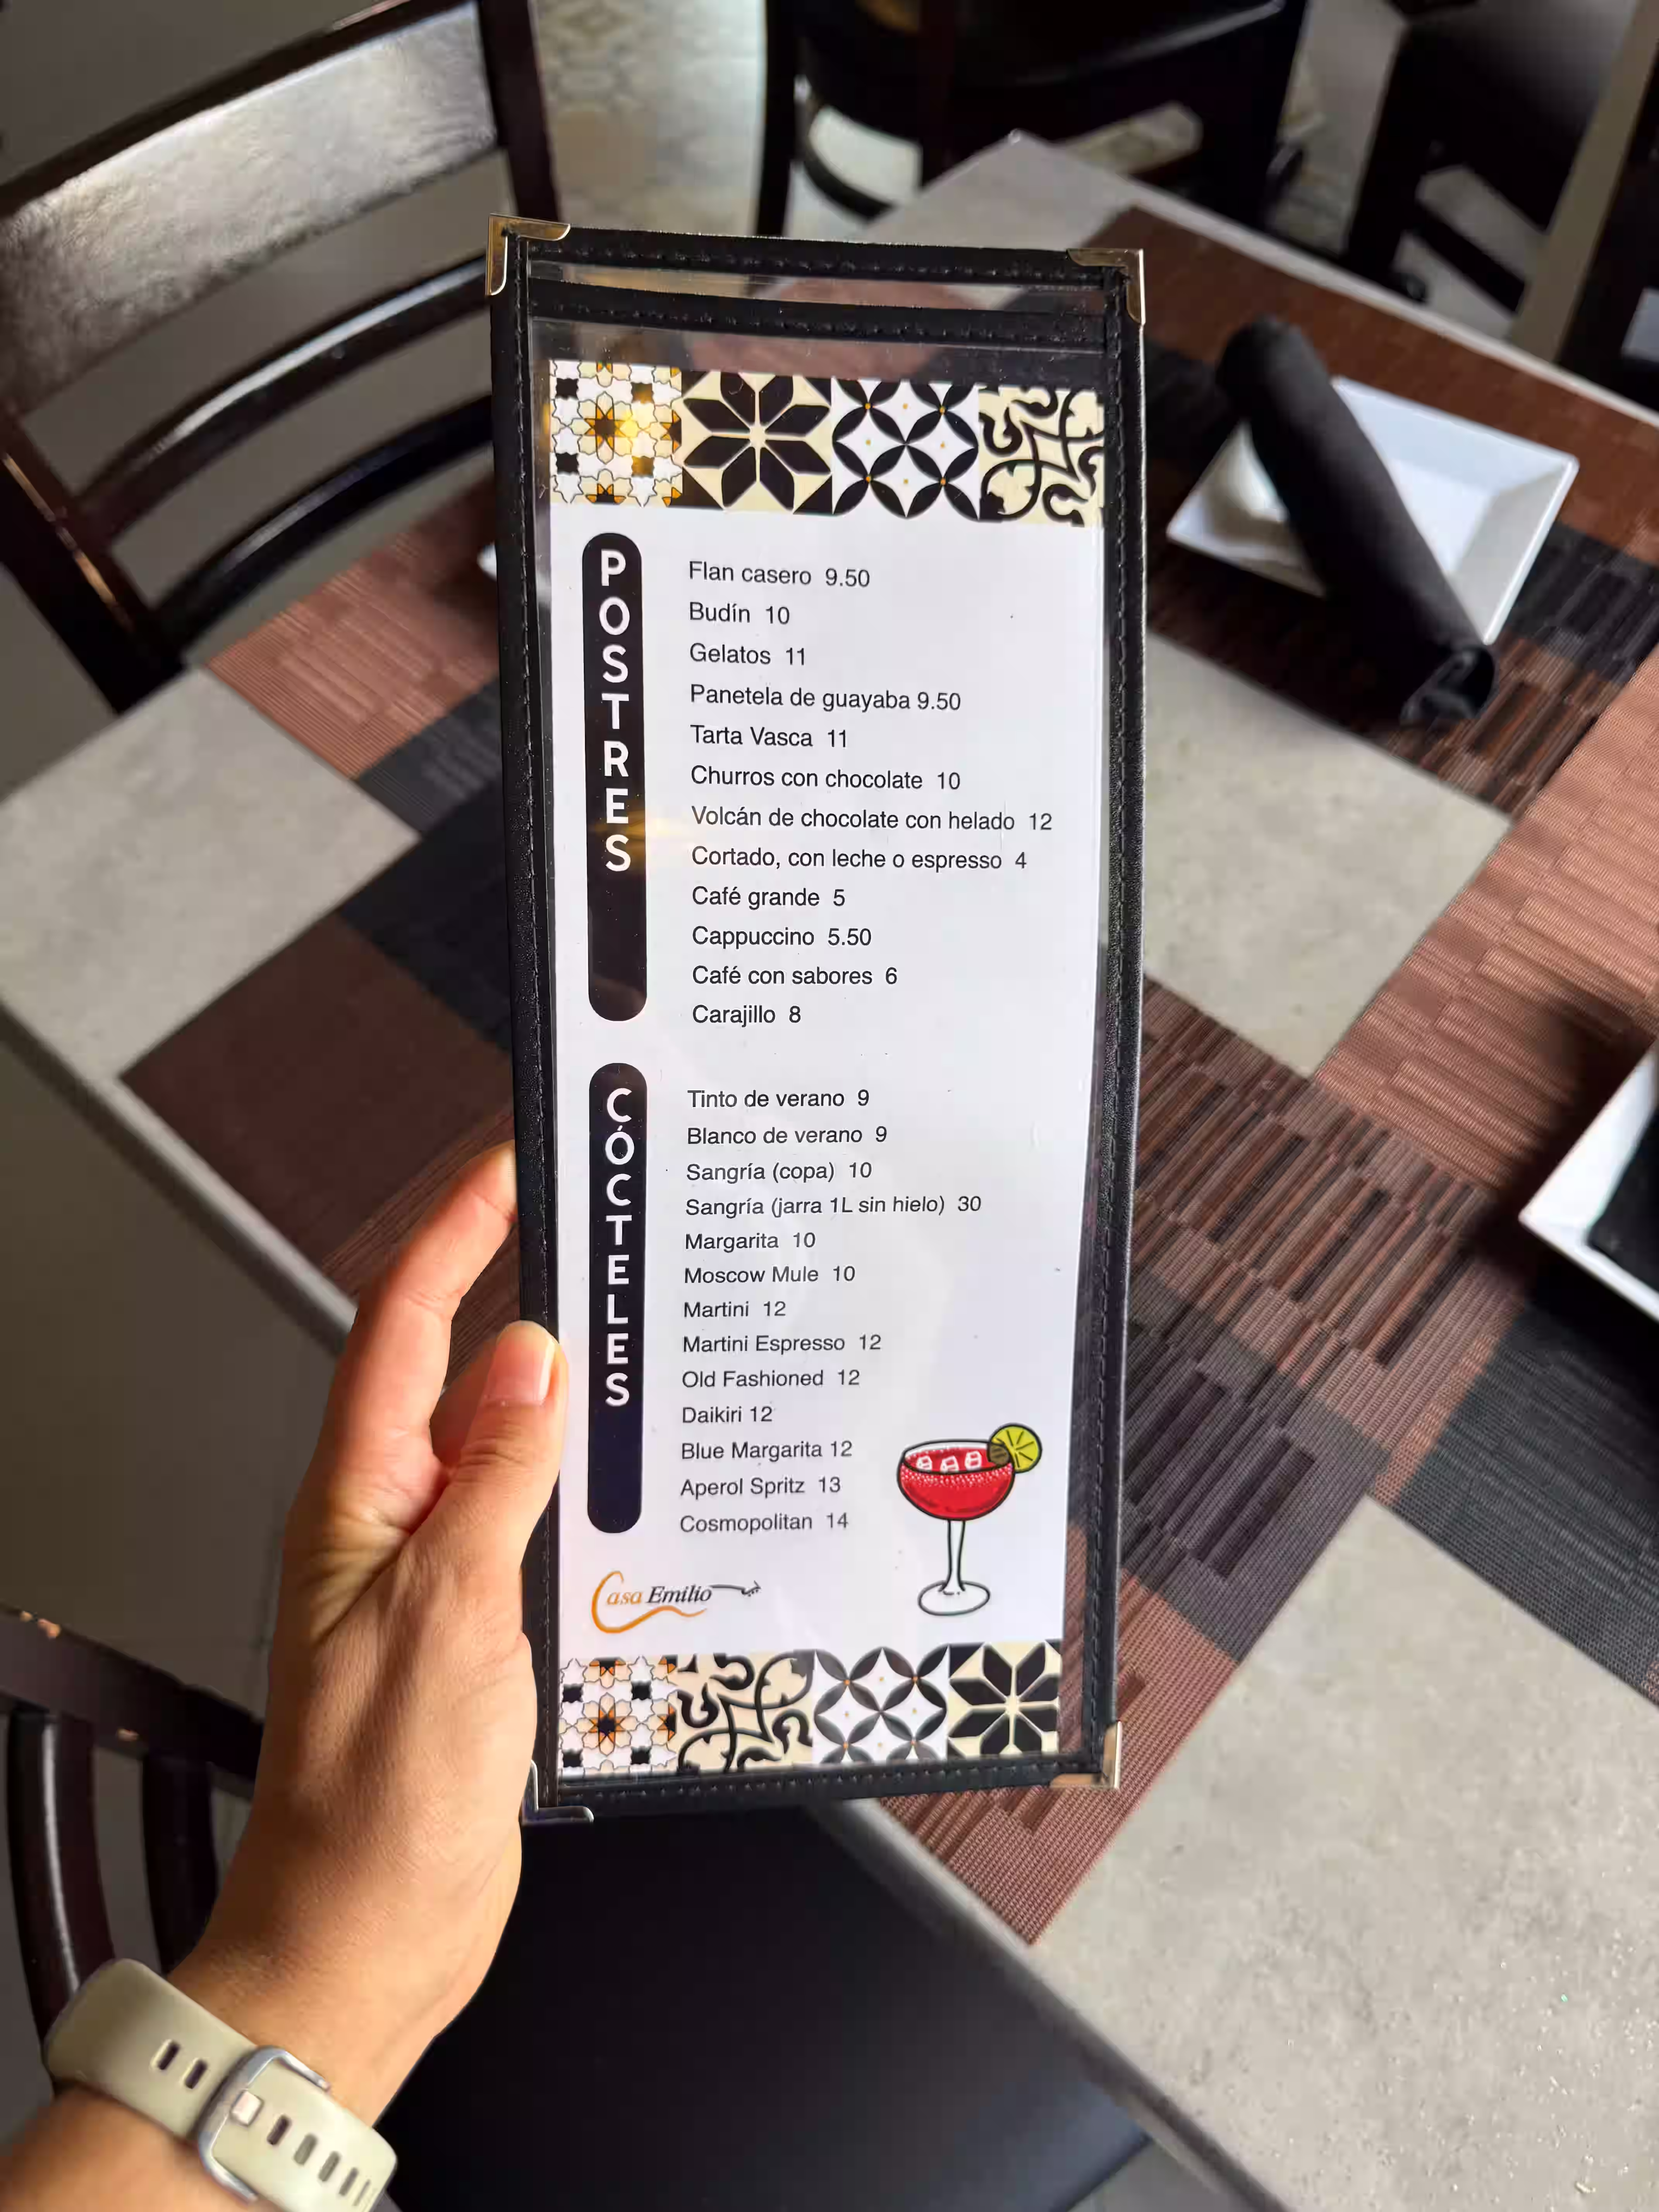 POSTRES
Flan casero 9.50
Budín 10
Gelatos 11
Panetela de guayaba 9.50
Tarta Vasca 11
Churros con chocolate 10
Volcán de chocolate con helado 12
Cortado, con leche o espresso 4
Café grande 5
Cappuccino 5.50
Café con sabores 6
Carajillo 8
CÓCTELES
Tinto de verano 9
Blanco de verano 9
Sangría (copa) 10
Sangría (jarra 1L sin hielo) 30
Margarita 10
Moscow Mule 10
Martini 12
Martini Espresso 12
Old Fashioned 12
Daikiri 12
Blue Margarita 12
Aperol Spritz 13
Cosmopolitan 14
Casa Emilio